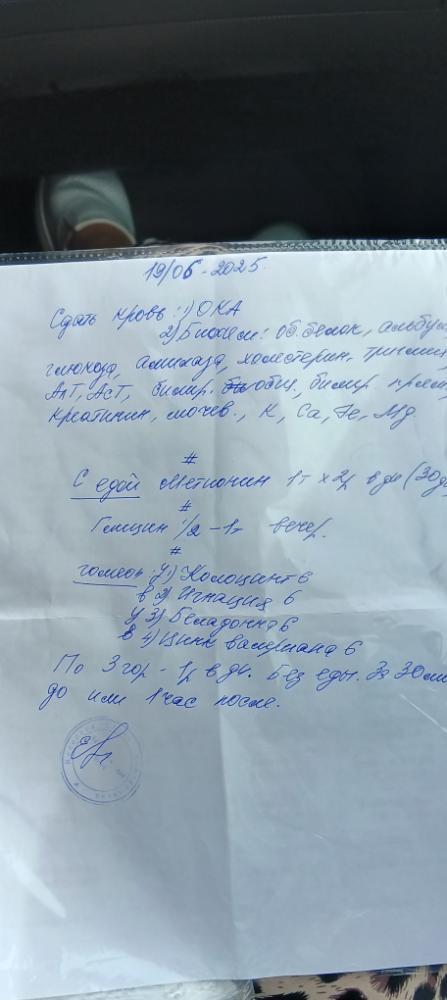 19/06-2025
Сдать кровь: 1) ОКА
2) Биохем: об.белок, альбу
глюкоза, амилаза, холестерин, тригли
АлТ, АсТ, билир. общ, билир. прям
креатинин, мочев., К, Са, Fe, Mg
#
С едой Метионин 1т х 2р в дн (30д
#
Глицин 1/2 - 1т вечер.
#
гомеоп 1) Колоцинт 6
в 2) Игнация 6
у 3) Беладонна 6
в 4) Цинк валериана 6
По 3 гор - 1р в дн. Без еды. За 30 ми
до или 1 час после.